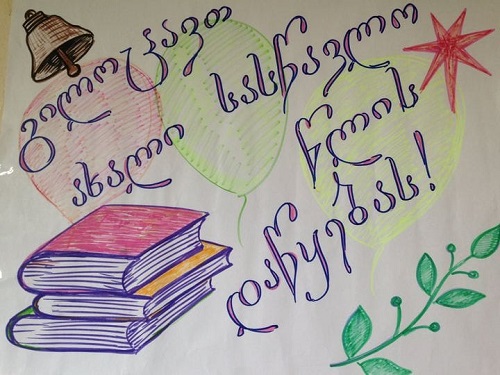 გილოცავთ
ახალი სასწავლო
წლის
დაწყებას!